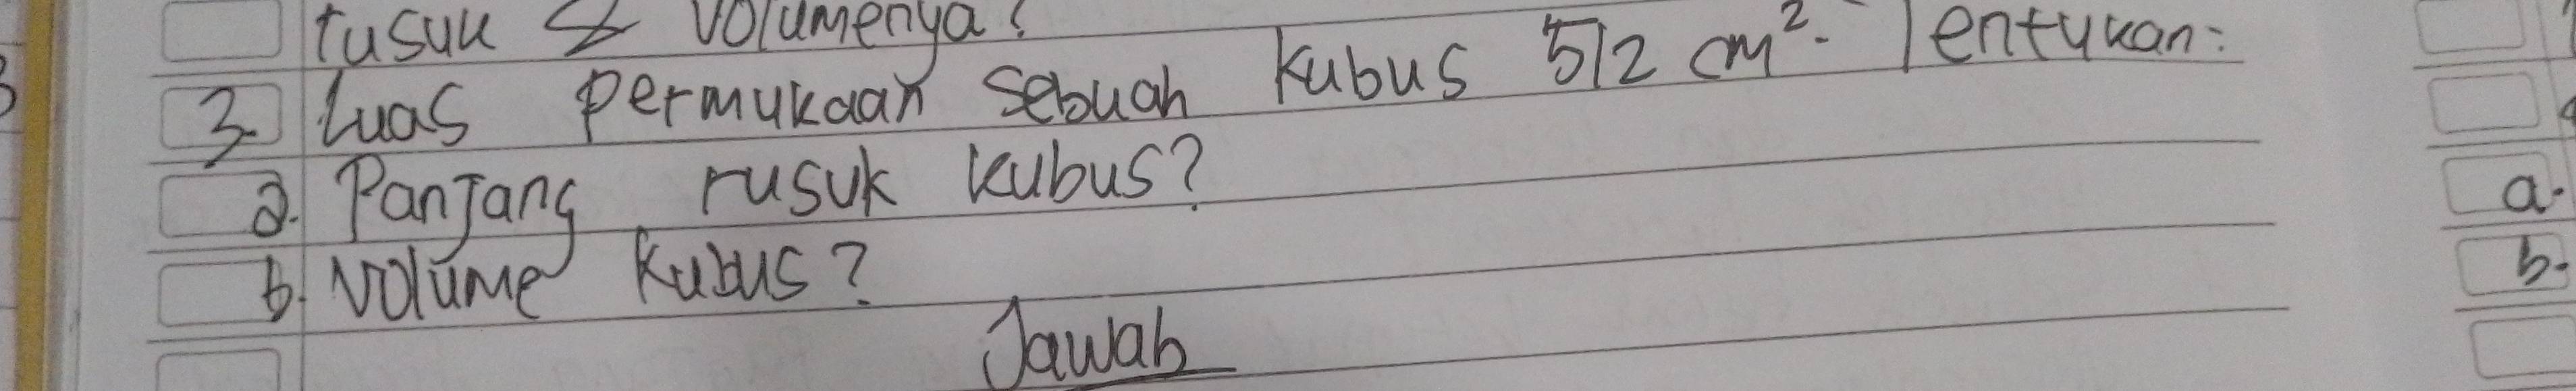 rusuk & volumenya?
3. Luas permukaan sebuah kubus 512 cm². Tentukan:
a. Panjang rusuk kubus?
b. Volume kubus?
Jawab
a.
b.